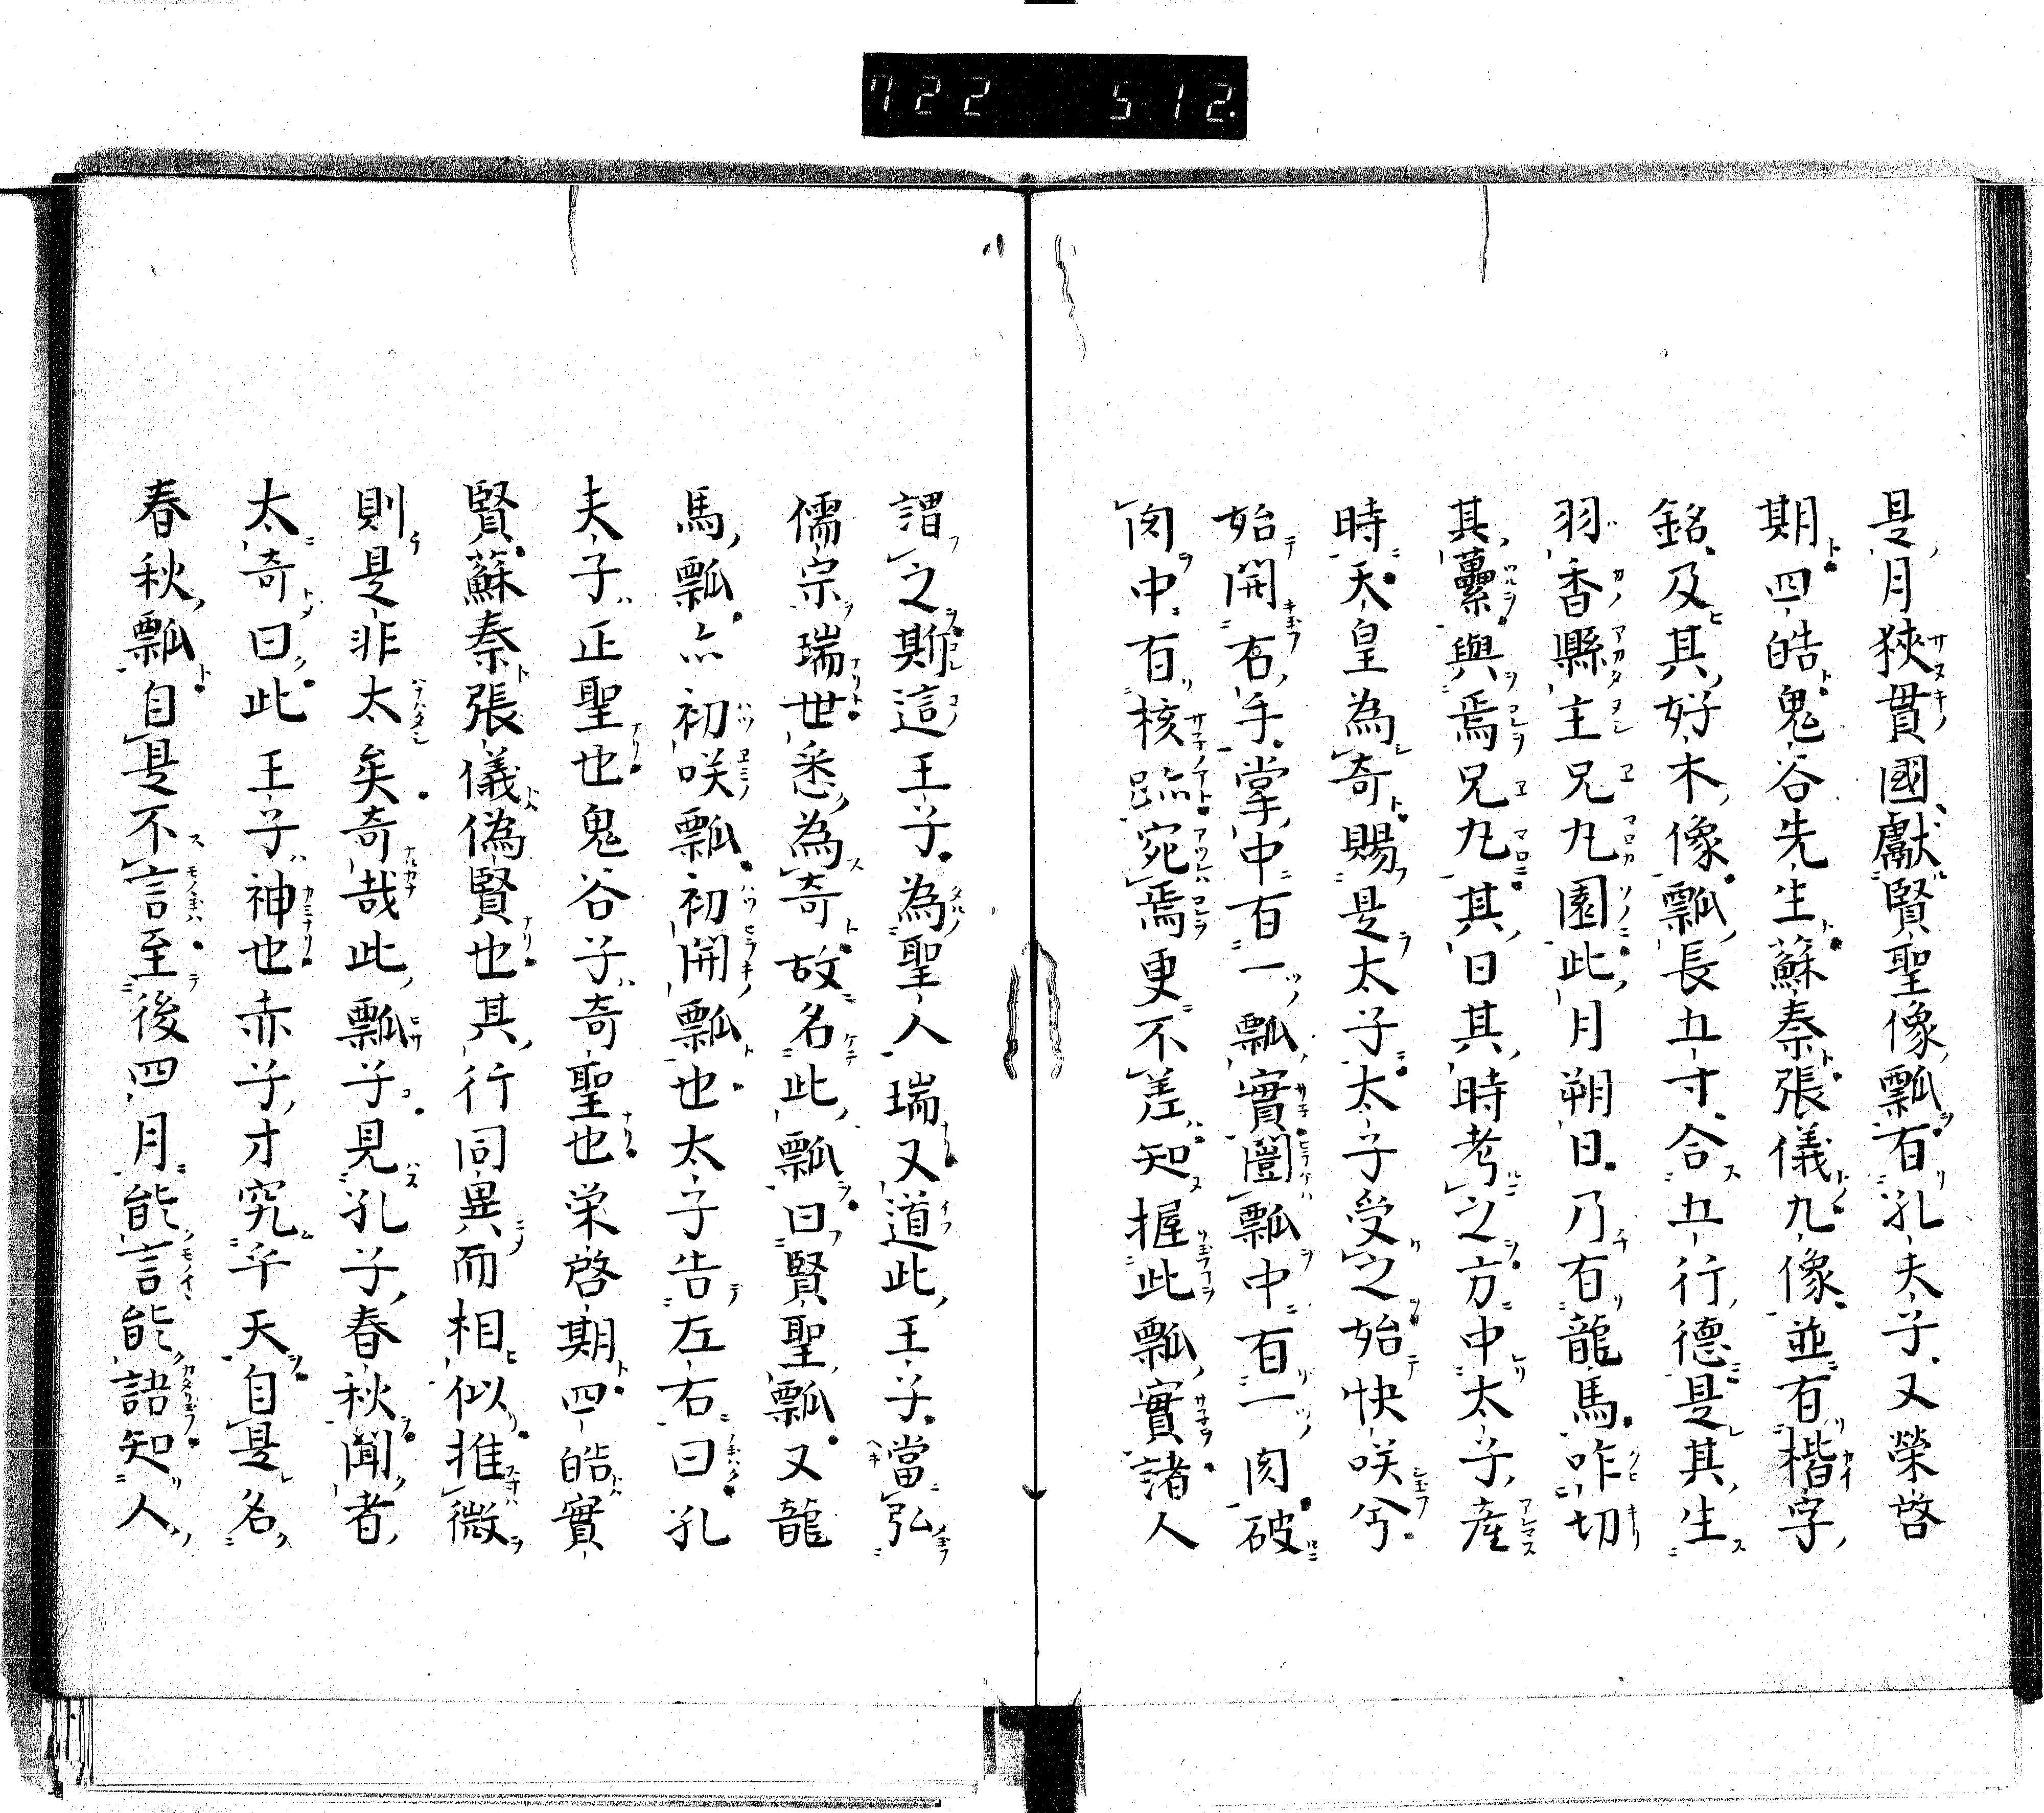 722 512.
是月狹貫國獻賢聖像瓢有孔夫子又榮啓
期四皓鬼谷先生蘇秦張儀九像並有楷字
銘及其好木像瓢長五寸合五行德是其生
羽香縣主兄九園此月朔日乃有龍馬咋切
其蘽與焉兄九其日其時考之方中太子産
時天皇為奇賜是太子太子受之始快咲兮
始開右手掌中有一瓢實闓瓢中有一肉破
肉中有核跡宛焉更不差知握此瓢實諸人
謂之斯這王子為聖人瑞又道此王子當弘
儒宗瑞世悉為奇故名此瓢曰賢聖瓢又龍
馬瓢亦初咲瓢初開瓢也太子告左右曰孔
夫子正聖也鬼谷子奇聖也栄啓期四皓實
賢蘇秦張儀偽賢也其行同異而相似推微
則是非太矣奇哉此瓢子見孔子春秋聞者
太奇曰此王子神也赤子才究乎天自是名
春秋瓢自是不言至後四月能言能語知人